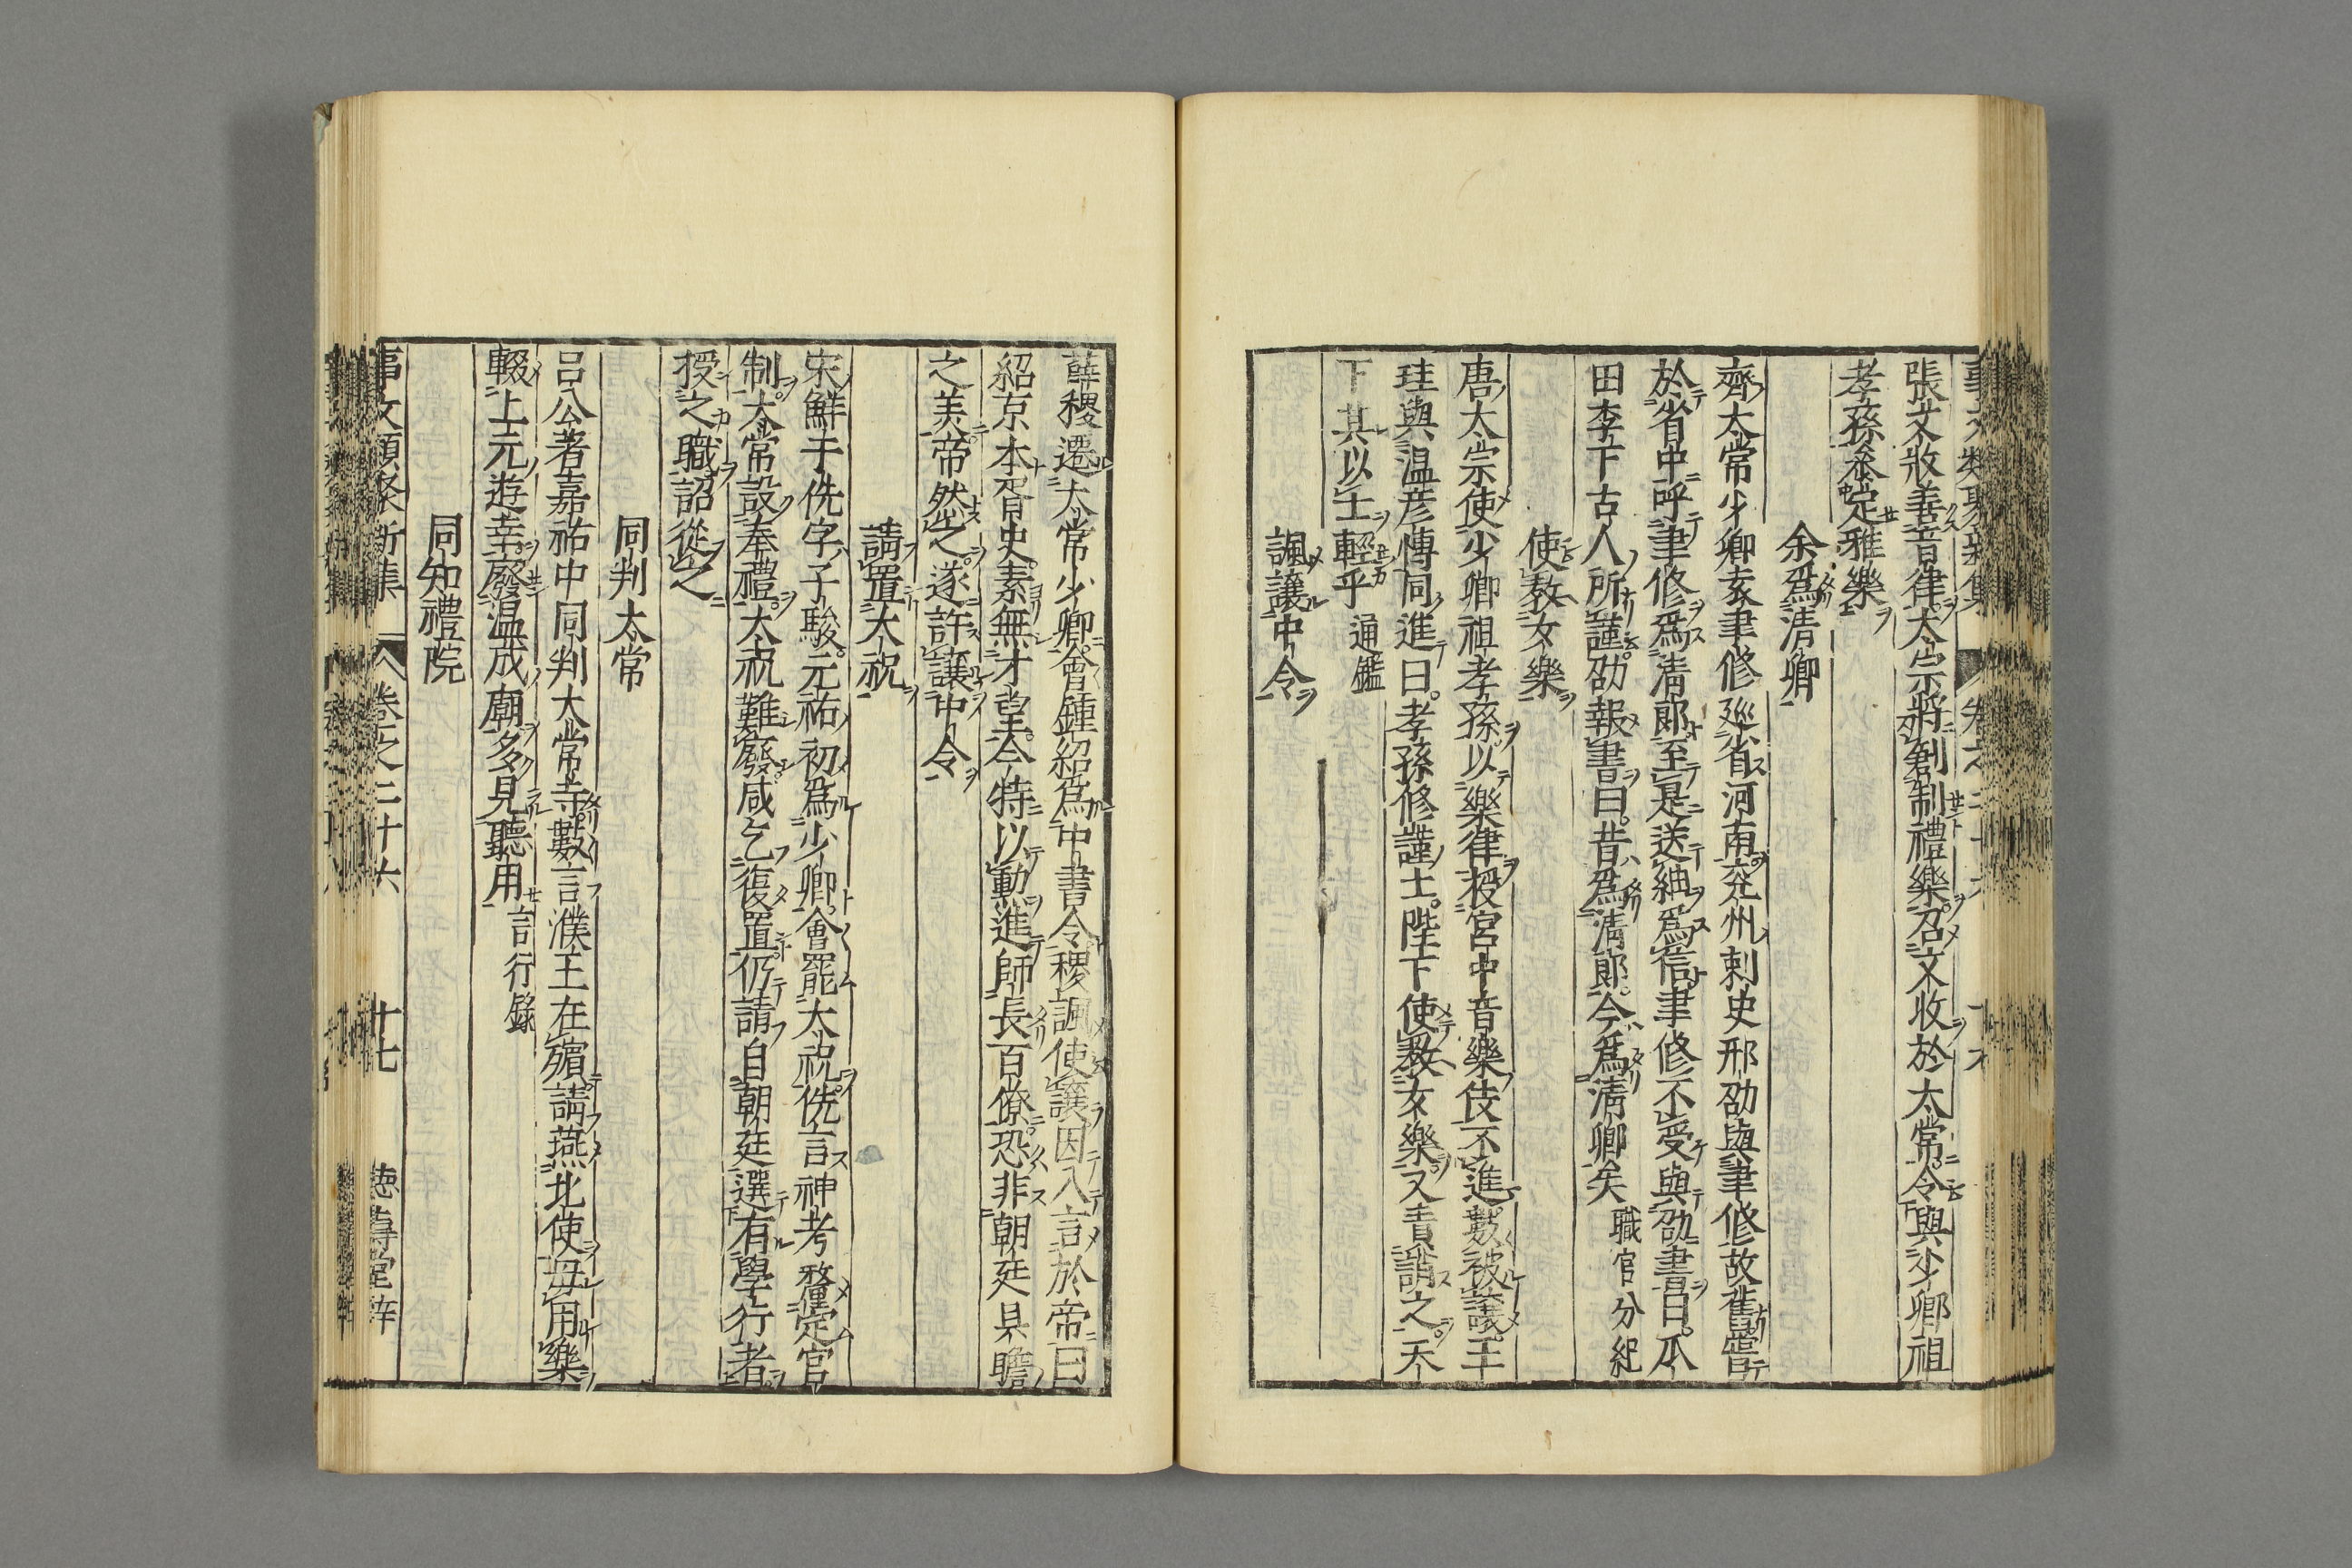 張文收善音律太宗將剏制禮樂召文收於太常令與少卿祖
孝孫叅定雅樂
余爲清卿
齊太常少卿袁聿修廵省河南兗州刺史邢劭與聿修故舊嘗
於省中呼聿修爲清郎至是送紬爲信聿修不受與劭書曰瓜
田李下古人所謹劭報書曰昔爲清郎今爲清卿矣 職官分紀
使教女樂
唐太宗使少卿祖孝孫以樂律授宮中音樂伎不進數被議王
珪與温彦博同進曰孝孫修謹士陛下使教女樂又責誚之天
下其以士輕乎 通鑑
諷讓中令
薛稷遷太常少卿會鍾紹爲中書令稷諷使讓因入言於帝曰
紹京本胥史素無才望今特以勳進師長百僚恐非朝廷具瞻
之美帝然之遂許讓中令
請置太祝
宋鮮于侁字子駿元祐初爲少卿會罷太祝侁言神考釐定官
制太常設奉禮太祝難廢咸乞復置仍請自朝廷選有學行者
授之職詔從之
同判太常
呂公著嘉祐中同判太常寺數言濮王在殯請燕北使毋用樂
輟上元遊幸廢温成廟多見聽用 言行錄
同知禮院
事文類聚新集 卷之二十六 十七 德壽堂梓